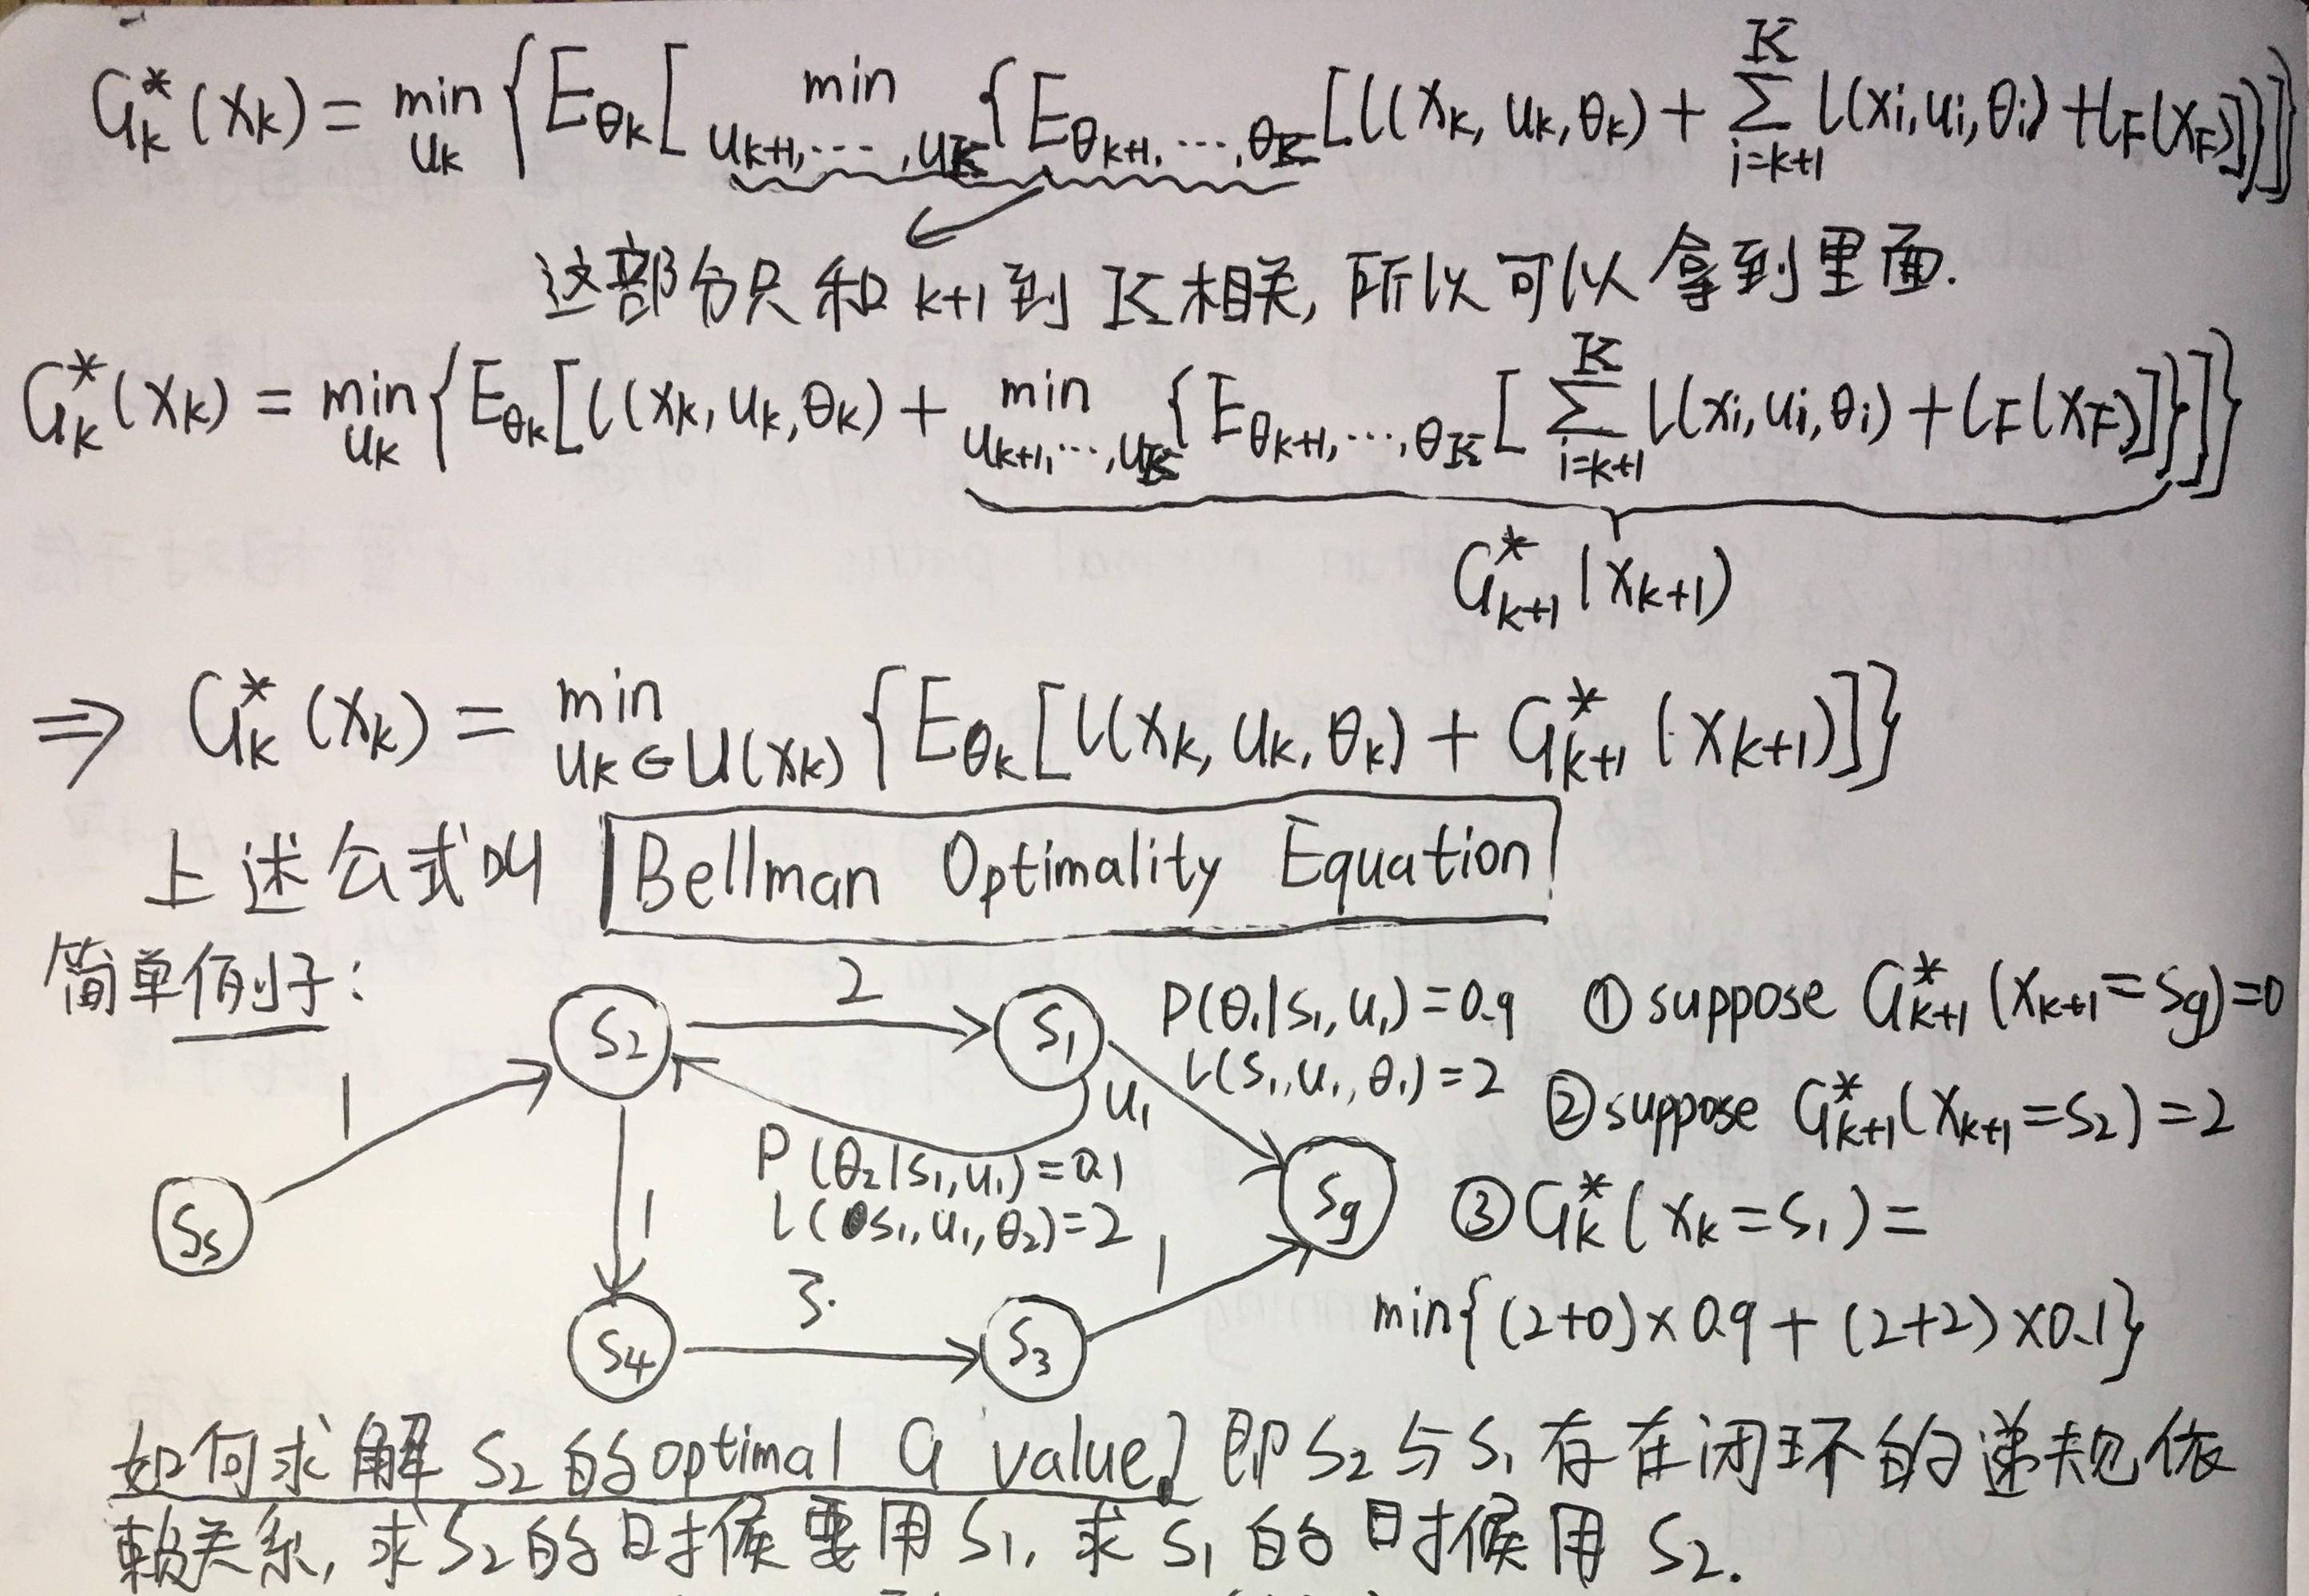 G*_k(x_k) = min_{u_k} { E_{θ_k} [ min_{u_{k+1}, ..., u_K} { E_{θ_{k+1}, ..., θ_K} [ l(x_k, u_k, θ_k) + Σ_{i=k+1}^{K} l(x_i, u_i, θ_i) + l_F(x_F) ] } ] }
这部分只和 k+1 到 K 相关, 所以可以拿到里面.
G*_k(x_k) = min_{u_k} { E_{θ_k} [ l(x_k, u_k, θ_k) + min_{u_{k+1}, ..., u_K} { E_{θ_{k+1}, ..., θ_K} [ Σ_{i=k+1}^{K} l(x_i, u_i, θ_i) + l_F(x_F) ] } ] }
G*_{k+1}(x_{k+1})
⇒ G*_k(x_k) = min_{u_k ∈ U(x_k)} { E_{θ_k} [ l(x_k, u_k, θ_k) + G*_{k+1}(x_{k+1}) ] }
上述公式叫 Bellman Optimality Equation
简单例子:
2
S2
S1
P(θ1|s1, u1) = 0.9
l(s1, u1, θ1) = 2
① suppose G*_{k+1}(x_{k+1} = Sg) = 0
1
u1
② suppose G*_{k+1}(x_{k+1} = S2) = 2
P(θ2|s1, u1) = 0.1
l(s1, u1, θ2) = 2
Ss
1
Sg
③ G*_k(x_k = S1) =
3.
1
min{ (2+0) × 0.9 + (2+2) × 0.1 }
S4
S3
如何求解 S2 的 optimal G value? 即 S2 与 S1 存在闭环的递规依
赖关系, 求 S2 的时候要用 S1, 求 S1 的时候用 S2.